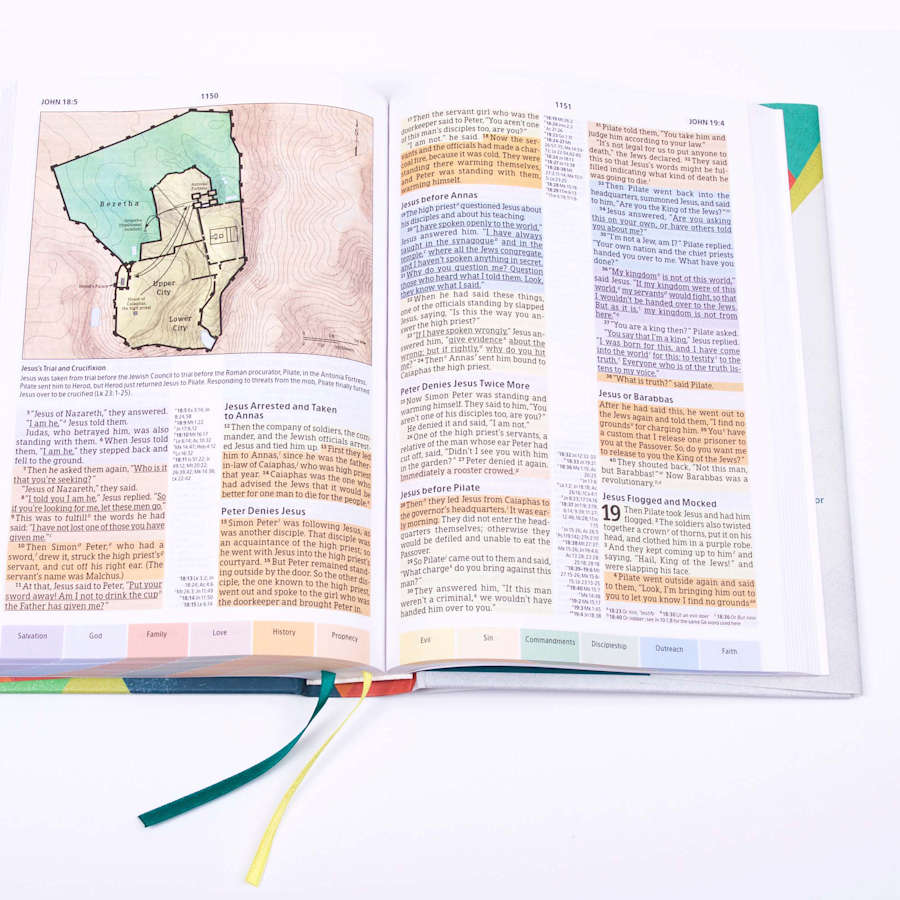 JOHN 18:5
1150
Bezetha
Antonia Fortress
Herod's Palace
Upper
City
Lower
City
Jesus's Trial and Crucifixion
Jesus was taken from trial before the Jewish Council to trial before the Roman procurator, Pilate, in the Antonia Fortress.
Pilate sent him to Herod, but Herod just returned Jesus to Pilate. Responding to threats from the mob, Pilate finally turned
Jesus over to be crucified (Lk 23:1-25).
5 "Jesus of Nazareth," they answered.
"I am he," Jesus told them.
Judas, who betrayed him, was also
standing with them. 6 When Jesus told
them, "I am he," they stepped back and
fell to the ground.
7 Then he asked them again, "Who is it
that you're seeking?"
"Jesus of Nazareth," they said.
8 "I told you I am he," Jesus replied. "So
if you're looking for me, let these men go."
9 This was to fulfill the words he had
said: "I have not lost one of those you have
given me."
10 Then Simon Peter, who had a
sword, drew it, struck the high priest's
servant, and cut off his right ear. (The
servant's name was Malchus.)
11 At that, Jesus said to Peter, "Put your
sword away! Am I not to drink the cup
the Father has given me?"
Jesus Arrested and Taken
to Annas
12 Then the company of soldiers, the com-
mander, and the Jewish officials arrest-
ed Jesus and tied him up. 13 First they led
him to Annas, since he was the father-
in-law of Caiaphas, who was high priest
that year. 14 Caiaphas was the one who
had advised the Jews that it would be
better for one man to die for the people.
Peter Denies Jesus
15 Simon Peter was following Jesus, as
was another disciple. That disciple was
an acquaintance of the high priest; so
he went with Jesus into the high priest's
courtyard. 16 But Peter remained stand-
ing outside by the door. So the other dis-
ciple, the one known to the high priest,
went out and spoke to the girl who was
the doorkeeper and brought Peter in.
Salvation
God
Family
Love
History
Prophecy
1151
JOHN 19:4
17 Then the servant girl who was the
doorkeeper said to Peter, "You aren't one
of this man's disciples too, are you?"
"I am not," he said. 18 Now the ser-
vants and the officials had made a char-
coal fire, because it was cold. They were
standing there warming themselves,
and Peter was standing with them,
warming himself.
Jesus before Annas
19 The high priest questioned Jesus about
his disciples and about his teaching.
20 "I have spoken openly to the world,"
Jesus answered him. "I have always
taught in the synagogue and in the
temple, where all the Jews congregate,
and I haven't spoken anything in secret.
21 Why do you question me? Question
those who heard what I told them. Look,
they know what I said."
22 When he had said these things,
one of the officials standing by slapped
Jesus, saying, "Is this the way you an-
swer the high priest?"
23 "If I have spoken wrongly," Jesus an-
swered him, "give evidence about the
wrong; but if rightly, why do you hit
me?" 24 Then Annas sent him bound to
Caiaphas the high priest.
Peter Denies Jesus Twice More
25 Now Simon Peter was standing and
warming himself. They said to him, "You
aren't one of his disciples too, are you?"
He denied it and said, "I am not."
26 One of the high priest's servants, a
relative of the man whose ear Peter had
cut off, said, "Didn't I see you with him
in the garden?" 27 Peter denied it again.
Immediately a rooster crowed.
Jesus before Pilate
28 Then they led Jesus from Caiaphas to
the governor's headquarters. It was ear-
ly morning. They did not enter the head-
quarters themselves; otherwise they
would be defiled and unable to eat the
Passover.
29 So Pilate came out to them and said,
"What charge do you bring against this
man?"
30 They answered him, "If this man
weren't a criminal, we wouldn't have
handed him over to you."
31 Pilate told them, "You take him and
judge him according to your law."
"It's not legal for us to put anyone to
death," the Jews declared. 32 They said
this so that Jesus's words might be ful-
filled indicating what kind of death he
was going to die.
33 Then Pilate went back into the
headquarters, summoned Jesus, and said
to him, "Are you the King of the Jews?"
34 Jesus answered, "Are you asking
this on your own, or have others told
you about me?"
35 "I'm not a Jew, am I?" Pilate replied.
"Your own nation and the chief priests
handed you over to me. What have you
done?"
36 "My kingdom is not of this world,"
said Jesus. "If my kingdom were of this
world, my servants would fight, so that
I wouldn't be handed over to the Jews.
But as it is, my kingdom is not from
here."
37 "You are a king then?" Pilate asked.
"You say that I'm a king," Jesus replied.
"I was born for this, and I have come
into the world for this: to testify to the
truth. Everyone who is of the truth lis-
tens to my voice."
38 "What is truth?" said Pilate.
Jesus or Barabbas
After he had said this, he went out to
the Jews again and told them, "I find no
grounds for charging him. 39 You have
a custom that I release one prisoner to
you at the Passover. So, do you want me
to release to you the King of the Jews?"
40 They shouted back, "Not this man,
but Barabbas!" Now Barabbas was a
revolutionary.
Jesus Flogged and Mocked
19 Then Pilate took Jesus and had him
flogged. 2 The soldiers also twisted
together a crown of thorns, put it on his
head, and clothed him in a purple robe.
3 And they kept coming up to him and
saying, "Hail, King of the Jews!" and
were slapping his face.
4 Pilate went outside again and said
to them, "Look, I'm bringing him out to
you to let you know I find no grounds
Evil
Sin
Commandments
Discipleship
Outreach
Faith
or